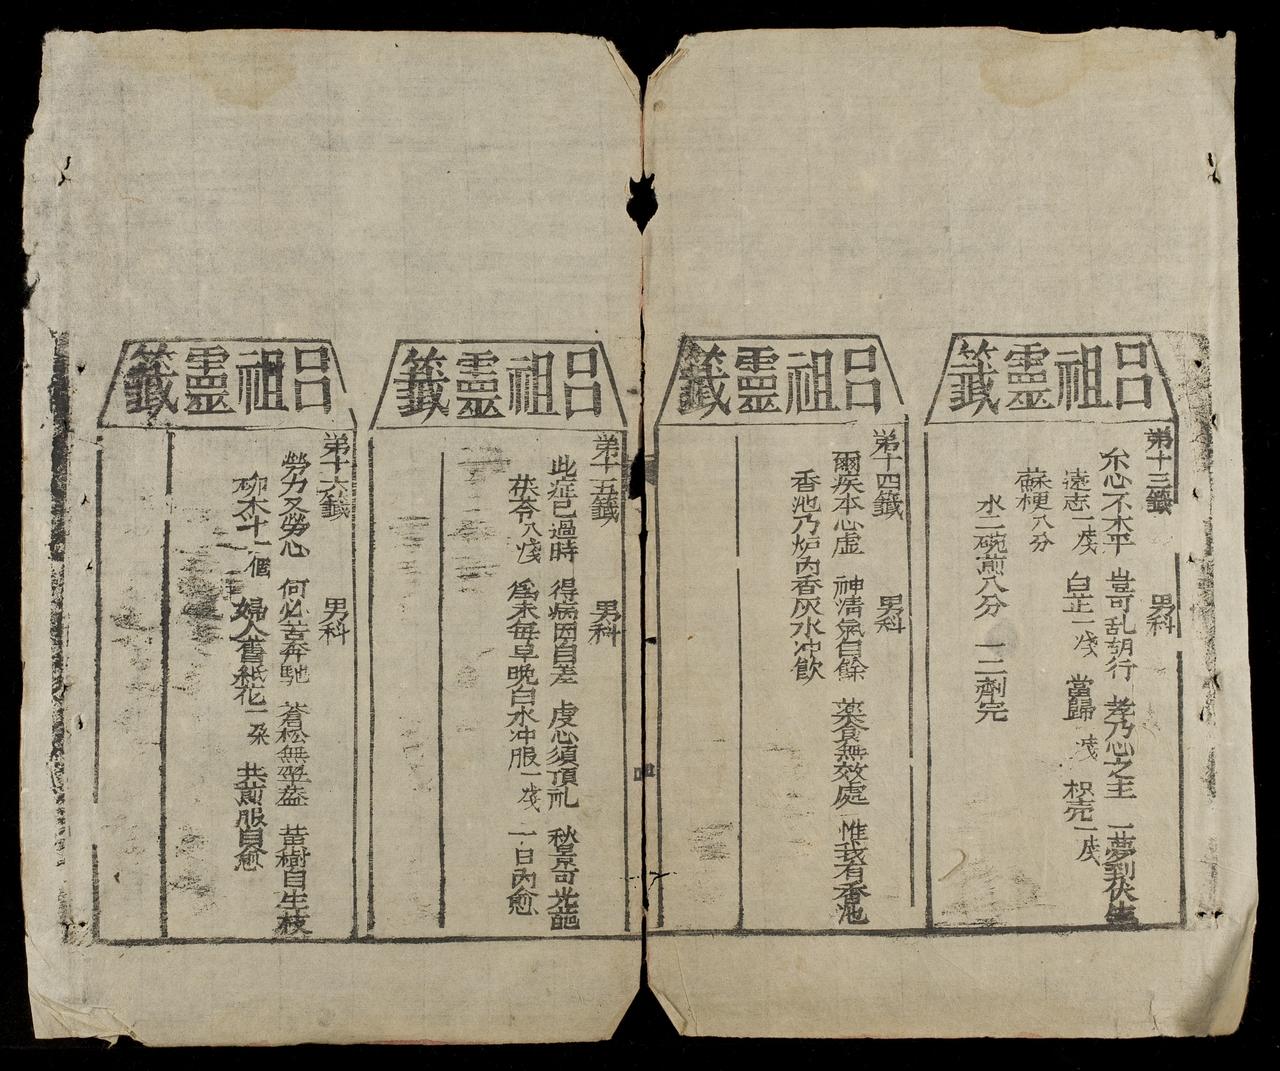 呂祖靈籤
第十三籤 男科
尒心不太平 豈可乱胡行 孝乃心之主 一夢到伏生
遠志一戋 白芷一戋 當歸一戋 枳壳一戋
蘇梗八分
水二碗煎八分 一二劑完
呂祖靈籤
第十四籤 男科
爾疾本心虛 神清氣自餘 薬食無效處 惟我有香池
香池乃炉內香灰水冲飲
呂祖靈籤
第十五籤 男科
此症已過時 得病因自差 虔心須頂礼 秋景可光
茯苓八戋 為末每早晚白水冲服一戋 一日內愈
呂祖靈籤
第十六籤 男科
勞力又勞心 何必苦奔馳 蒼松無翠盖 黃樹自生枝
柳木斗一個 婦人舊紙花一朶 共煎服自愈